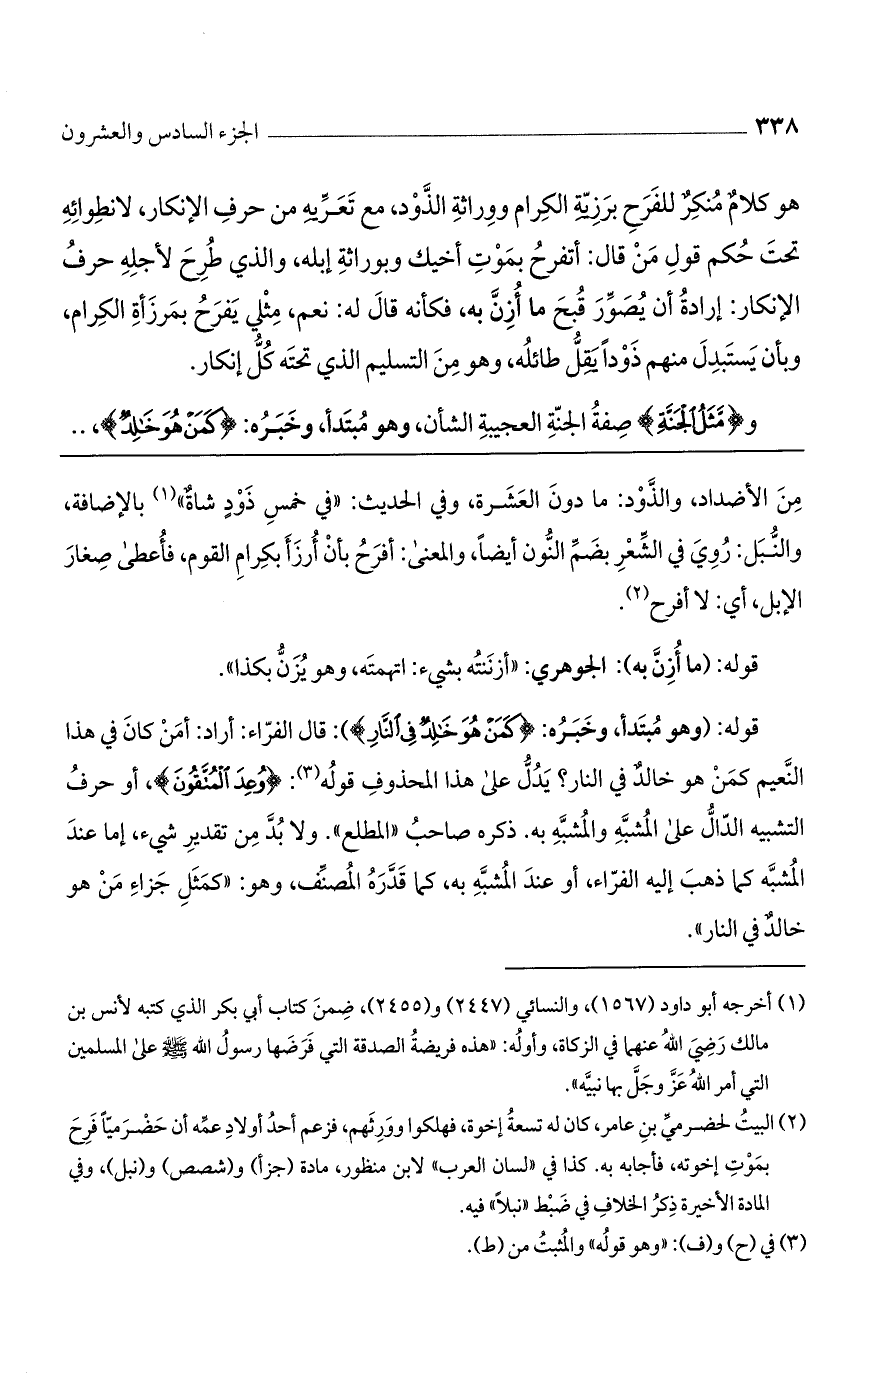 ٣٣٨ ــــــــــــــــــــــــــــــــ الجزء السادس والعشرون
هو كلامٌ مُنكِرٌ للفَرَحِ برَزِيّةِ الكِرام ووِراثةِ الذَّوْد، مع تَعَـرِّيهِ من حرفِ الإنكار، لانطِوائِهِ
تحتَ حُكم قولِ مَنْ قال: أتفرحُ بمَوْتِ أخيك وبوراثةِ إبله، والذي طُرِحَ لأجلِهِ حرفُ
الإنكار: إرادةُ أن يُصَوِّرَ قُبحَ ما أُزِنَّ به، فكأنه قالَ له: نعم، مِثْلي يَفرَحُ بمَرزَأةِ الكِرام،
وبأن يَستَبدِلَ منهم ذَوْداً يَقِلُّ طائلُه، وهو مِنَ التسليم الذي تحتَه كُلُّ إنكار.
و﴿مَّثَلُ الْجَنَّةِ﴾ صِفةُ الجنّةِ العجيبةِ الشأن، وهو مُبتَدأ، وخَبَـرُه: ﴿كَمَنْ هُوَ خَالِدٌ﴾، ..
مِنَ الأضداد، والذَّوْد: ما دونَ العَشَـرة، وفي الحديث: «في خمسِ ذَوْدٍ شاةٌ»(١) بالإضافة،
والنُّـبَل: رُوِيَ في الشِّعْرِ بضَمِّ النُّون أيضاً، والمعنىٰ: أفرَحُ بأنْ أُرزَأَ بكِرامِ القوم، فأُعطىٰ صِغارَ
الإبل، أي: لا أفرح(٢).
قوله: (ما أُزِنَّ به): الجوهري: «أزنَنتُه بشيء: اتهمتَه، وهو يُزَنُّ بكذا».
قوله: (وهو مُبتَدأ، وخَبَـرُه: ﴿كَمَنْ هُوَ خَالِدٌ فِي النَّارِ﴾): قال الفرّاء: أراد: أمَنْ كانَ في هذا
النَّعيم كمَنْ هو خالدٌ في النار؟ يَدُلُّ علىٰ هذا المحذوفِ قولُه(٣): ﴿وُعِدَ الْمُتَّقُونَ﴾، أو حرفُ
التشبيه الدّالُّ علىٰ المُشبَّهِ والمُشبَّهِ به. ذكره صاحبُ «المطلع». ولا بُدَّ مِن تقديرِ شيء، إما عندَ
المُشبَّه كما ذهبَ إليه الفرّاء، أو عندَ المُشبَّهِ به، كما قَدَّرَهُ المُصنِّف، وهو: «كمَثَلِ جَزاءِ مَنْ هو
خالدٌ في النار».
(١) أخرجه أبو داود (١٥٦٧)، والنسائي (٢٤٤٧) و(٢٤٥٥)، ضِمنَ كتاب أبي بكر الذي كتبه لأنس بن
مالك رَضِيَ اللهُ عنهما في الزكاة، وأولُه: «هذه فريضةُ الصدقة التي فَرَضَها رسولُ الله ﷺ علىٰ المسلمين
التي أمر اللهُ عَزَّ وجَلَّ بها نبيَّه».
(٢) البيتُ لحضـرميِّ بنِ عامر، كان له تسعةُ إخوة، فهلكوا ووَرِثَهم، فزعم أحدُ أولادِ عمِّه أن حَضْـرَميّاً فَرِحَ
بمَوْتِ إخوته، فأجابه به. كذا في «لسان العرب» لابن منظور، مادة (جزأ) و(شصص) و(نبل)، وفي
المادة الأخيرة ذِكرُ الخلافِ في ضَبْط «نبلاً» فيه.
(٣) في (ح) و(ف): «وهو قولُه» والمُثبتُ من (ط).